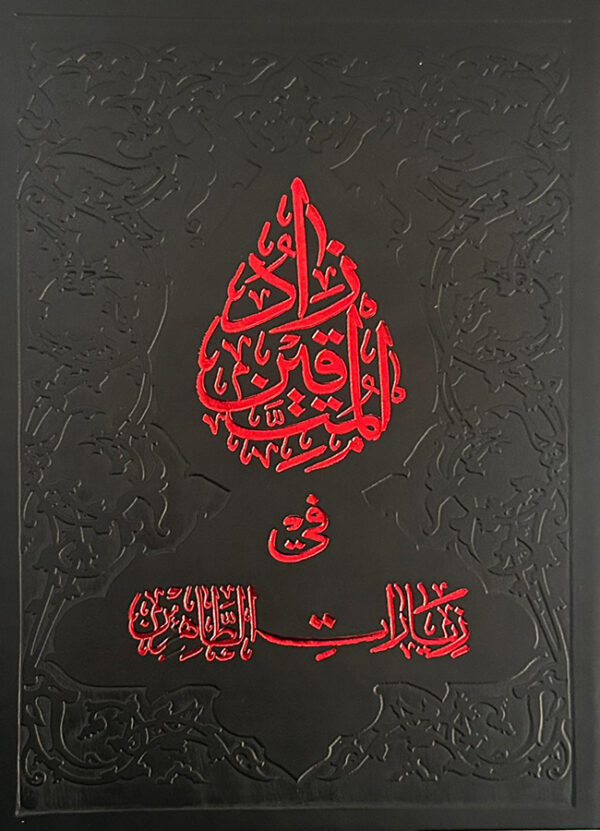 زاد
المتقين
في
زيارات الطاهرين